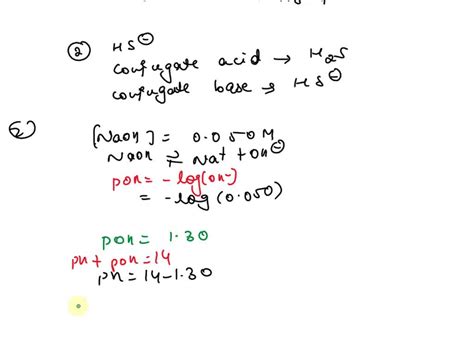 ② HS⊖
conjugate acid → H₂S
conjugate base → HS⊖
5)
[NaOH] = 0.050M
NaOH ⇌ Na⁺ + OH⊖
pOH = -log(OH-)
= -log (0.050)
pOH = 1.30
pH + pOH = 14
pH = 14-1.30